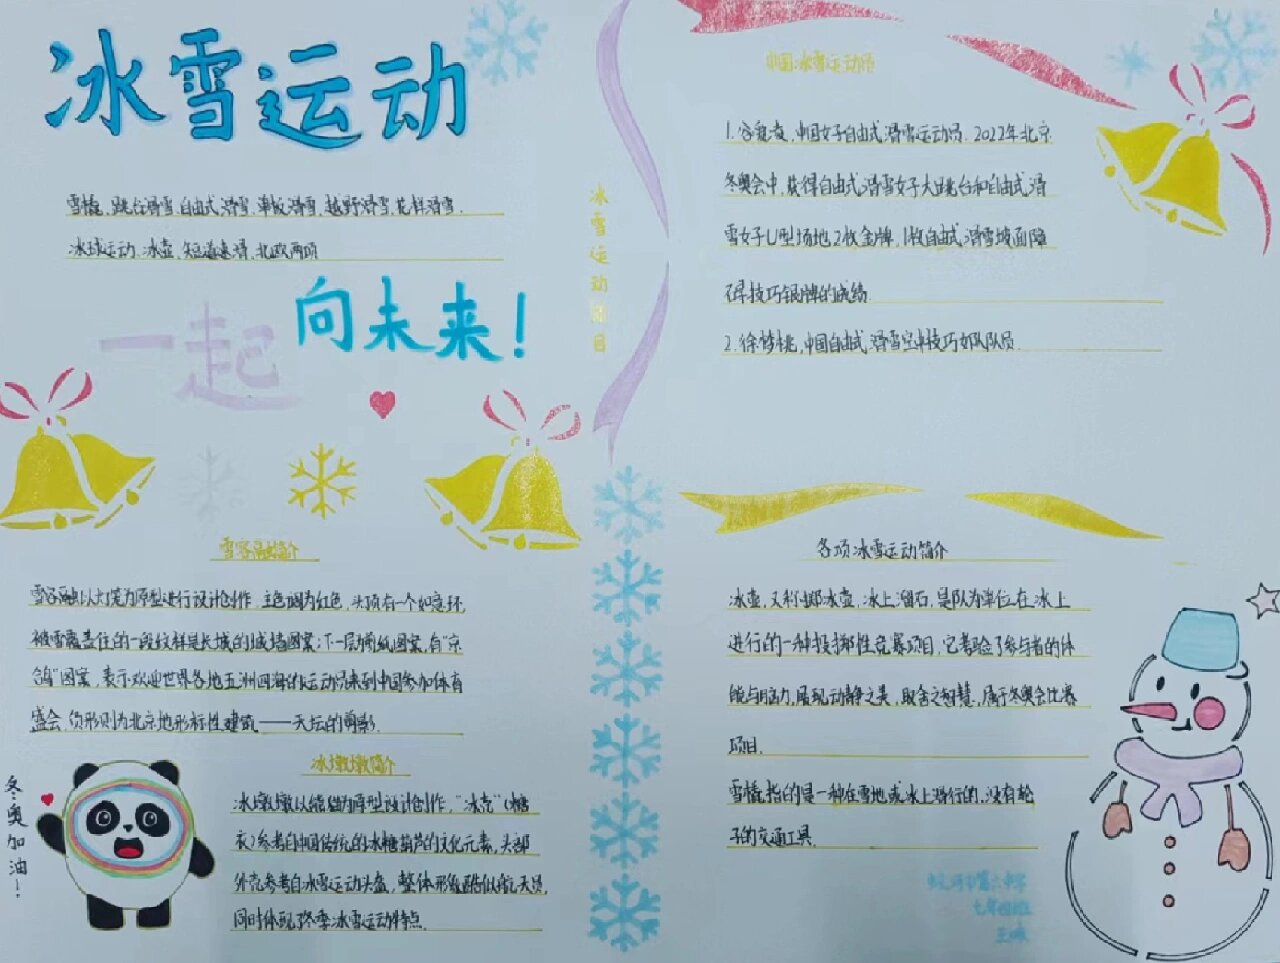 冰雪运动
雪橇、跳台滑雪、自由式滑雪、单板滑雪、越野滑雪、花样滑雪、
冰球运动、冰壶、短道速滑、北欧两项
一起向未来!
雪容融简介
雪容融以灯笼为原型进行设计创作,主色调为红色,头顶有一个如意环,
被雪覆盖住的一段纹样是长城的城墙图案;下一层剪纸图案,有"京
鸽"图案,表示欢迎世界各地五洲四海的运动员来到中国参加体育
盛会,负形则为北京地形标性建筑——天坛的剪影.
冰墩墩简介
冰墩墩以熊猫为原型设计创作,"冰壳"(糖
衣)参考自中国传统的冰糖葫芦的文化元素,头部
外壳参考自冰雪运动头盔,整体形象酷似航天员,
同时体现了冬季冰雪运动特点.
冬奥加油!
冰雪运动项目
中国冰雪运动员
1.谷爱凌,中国女子自由式滑雪运动员.2022年北京
冬奥会中,获得自由式滑雪女子大跳台和自由式滑
雪女子U型场地2枚金牌,1枚自由式滑雪坡面障
碍技巧银牌的成绩.
2.徐梦桃,中国自由式滑雪空中技巧女队队员.
各项冰雪运动简介
冰壶,又称掷冰壶,冰上溜石,是队为单位在冰上
进行的一种投掷性竞赛项目,它考验了参与者的体
能与脑力,展现动静之美,取舍之智慧,属于冬奥会比赛
项目.
雪橇指的是一种在雪地或冰上滑行的,没有轮
子的交通工具.
市第六中学
七年四班
王